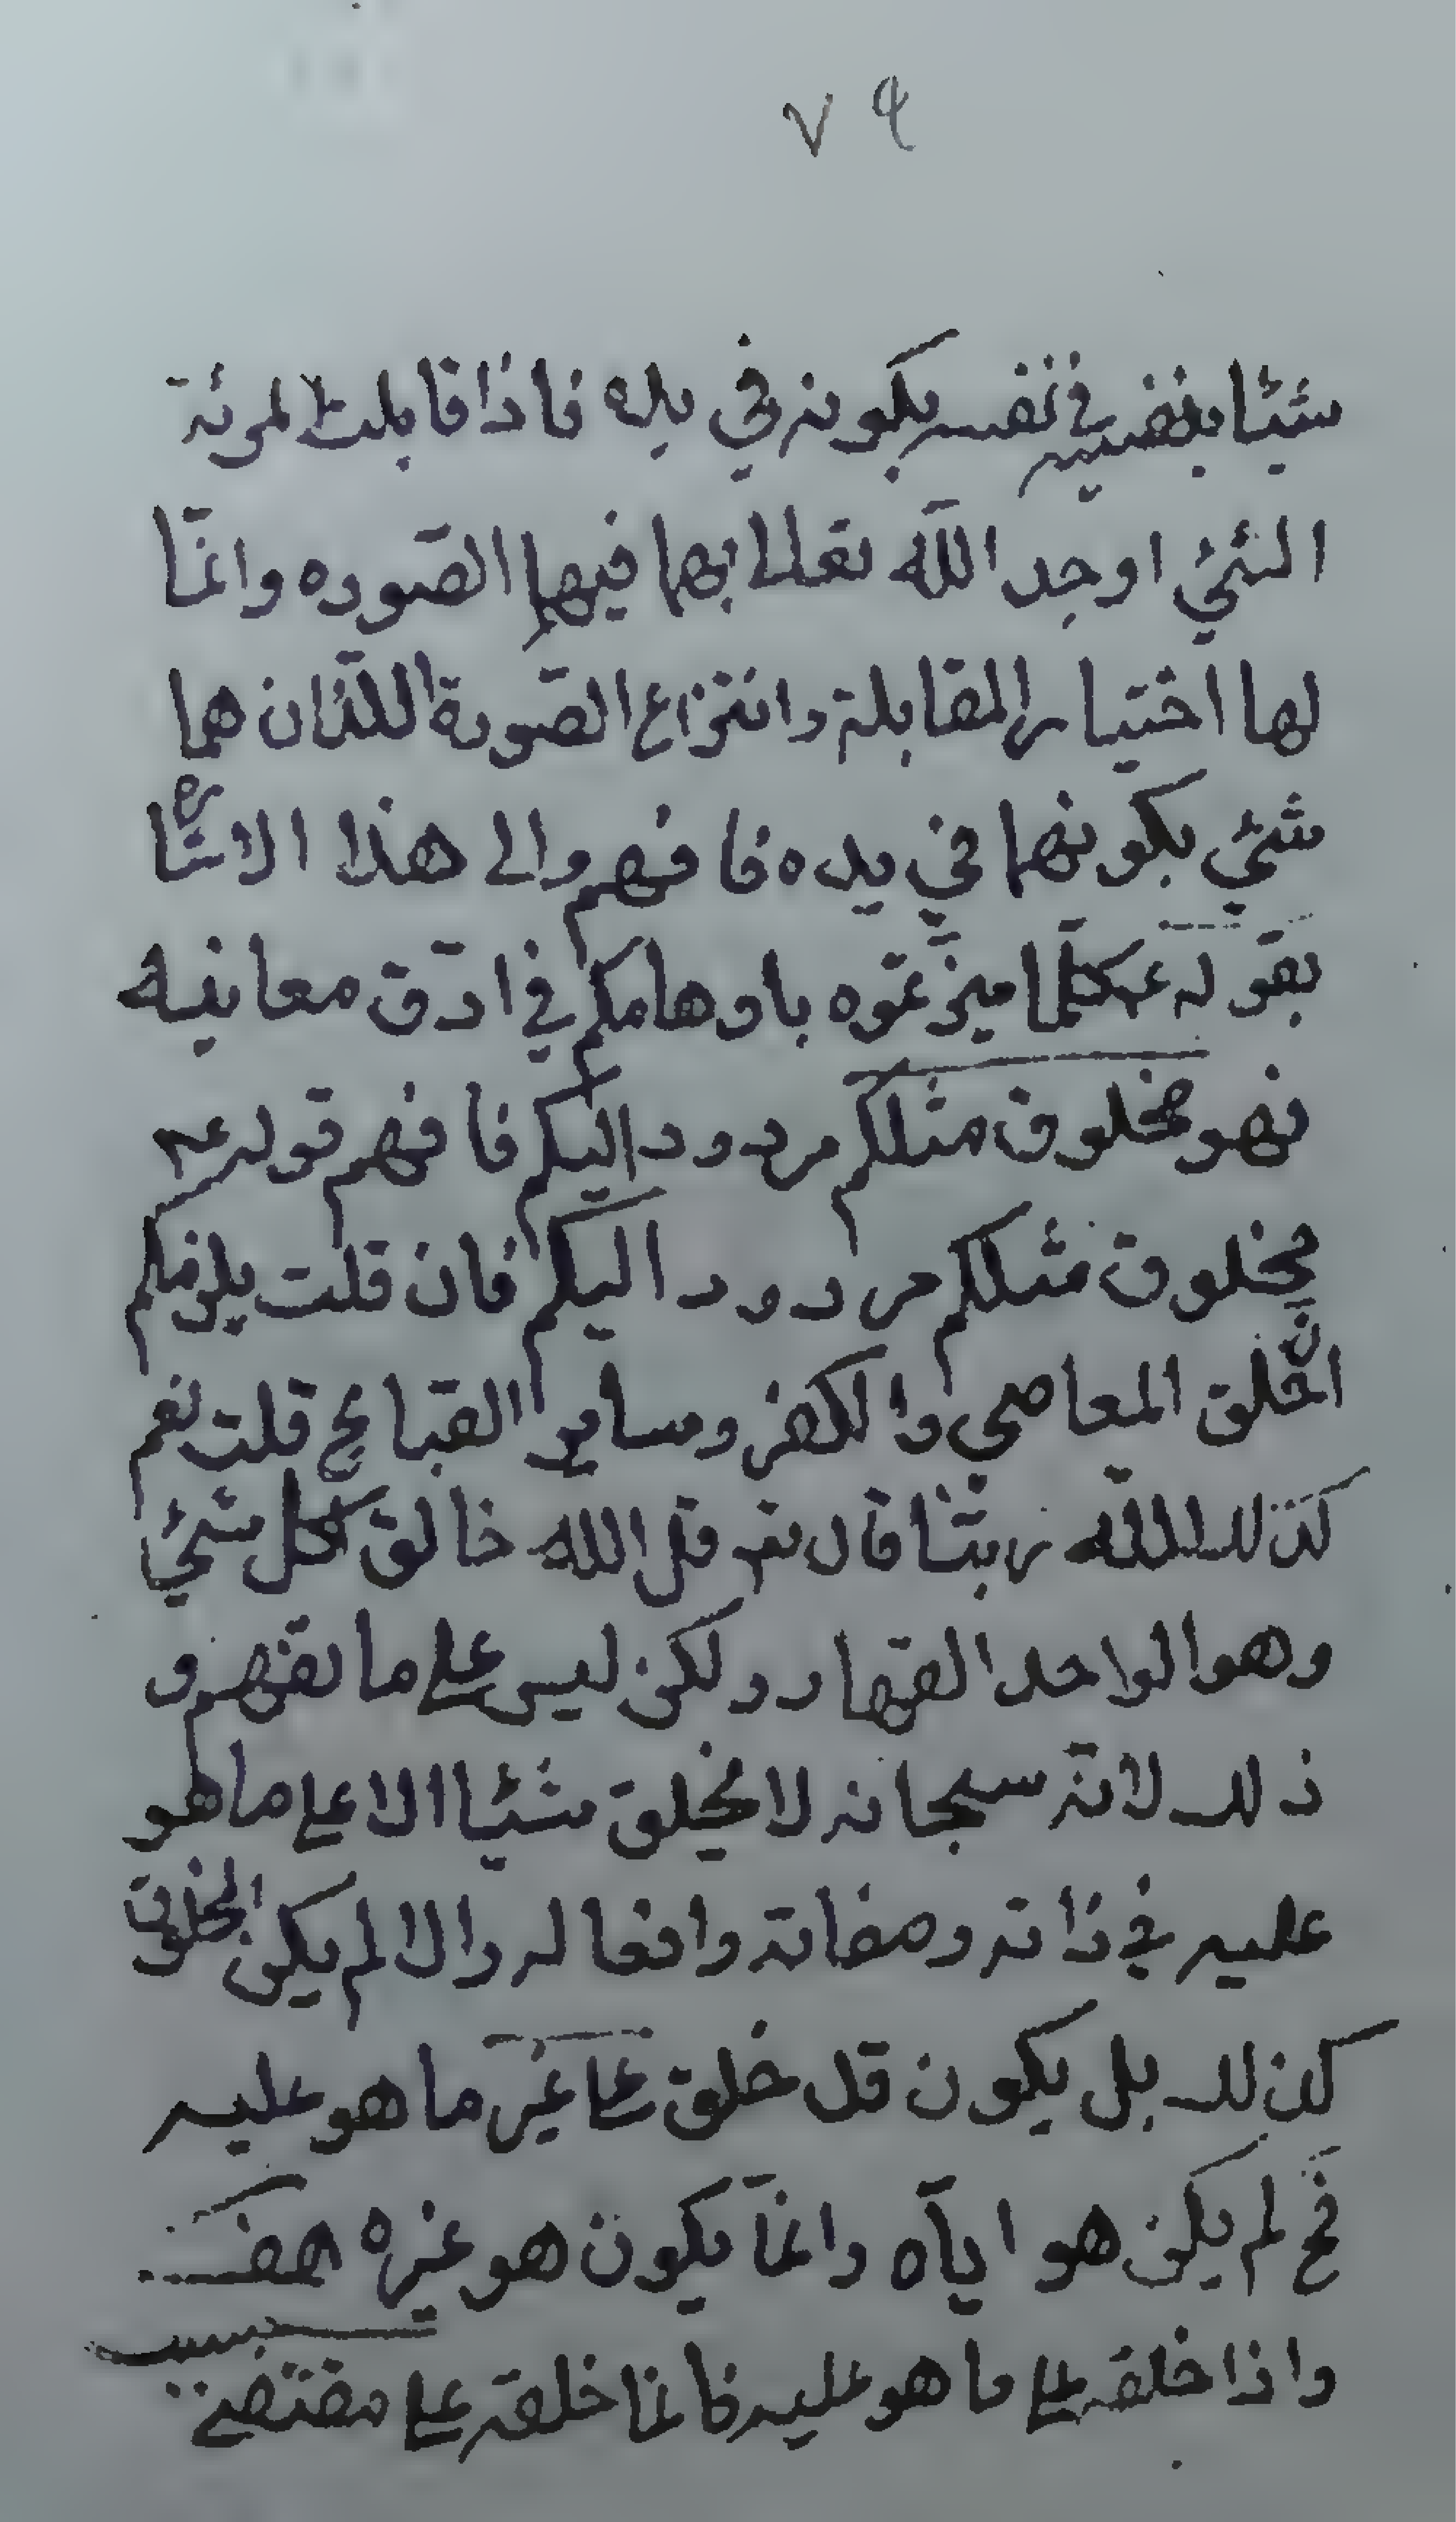 ٧٩
شيئا بنفسه في نفسه بكونه في يده فاذا قابلت المرئة
الشئ اوجد الله تعا بها فيها الصوره وانما
لها اختيار المقابلة وانتزاع الصورة اللذان هما
شئ بكونهما في يده فافهم والى هذا الاشاره
بقوله ع كلما ميزتموه باوهامكم في ادق معانيه
فهو مخلوق مثلكم مردود اليكم فافهم قوله ع
مخلوق مثلكم مردود اليكم فان قلت يلزمكم
ان خلق المعاصي والكفر وساير القبايح قلت نعم
كذلك الله ربنا قال تع قل الله خالق كل شئ
وهو الواحد القهار ولكن ليس على ما تفهم و
ذلك لانه سبحانه لا يخلق شيئا الا على ما هو
عليه في ذاته وصفاته وافعاله والا لم يكن المخلوق
كذلك بل يكون قد خلق على غير ما هو عليه
فح لم يكن هو اياه وانما يكون هو غيره هف
واذا خلقه على ما هو عليه فانما خلقه على مقتضى